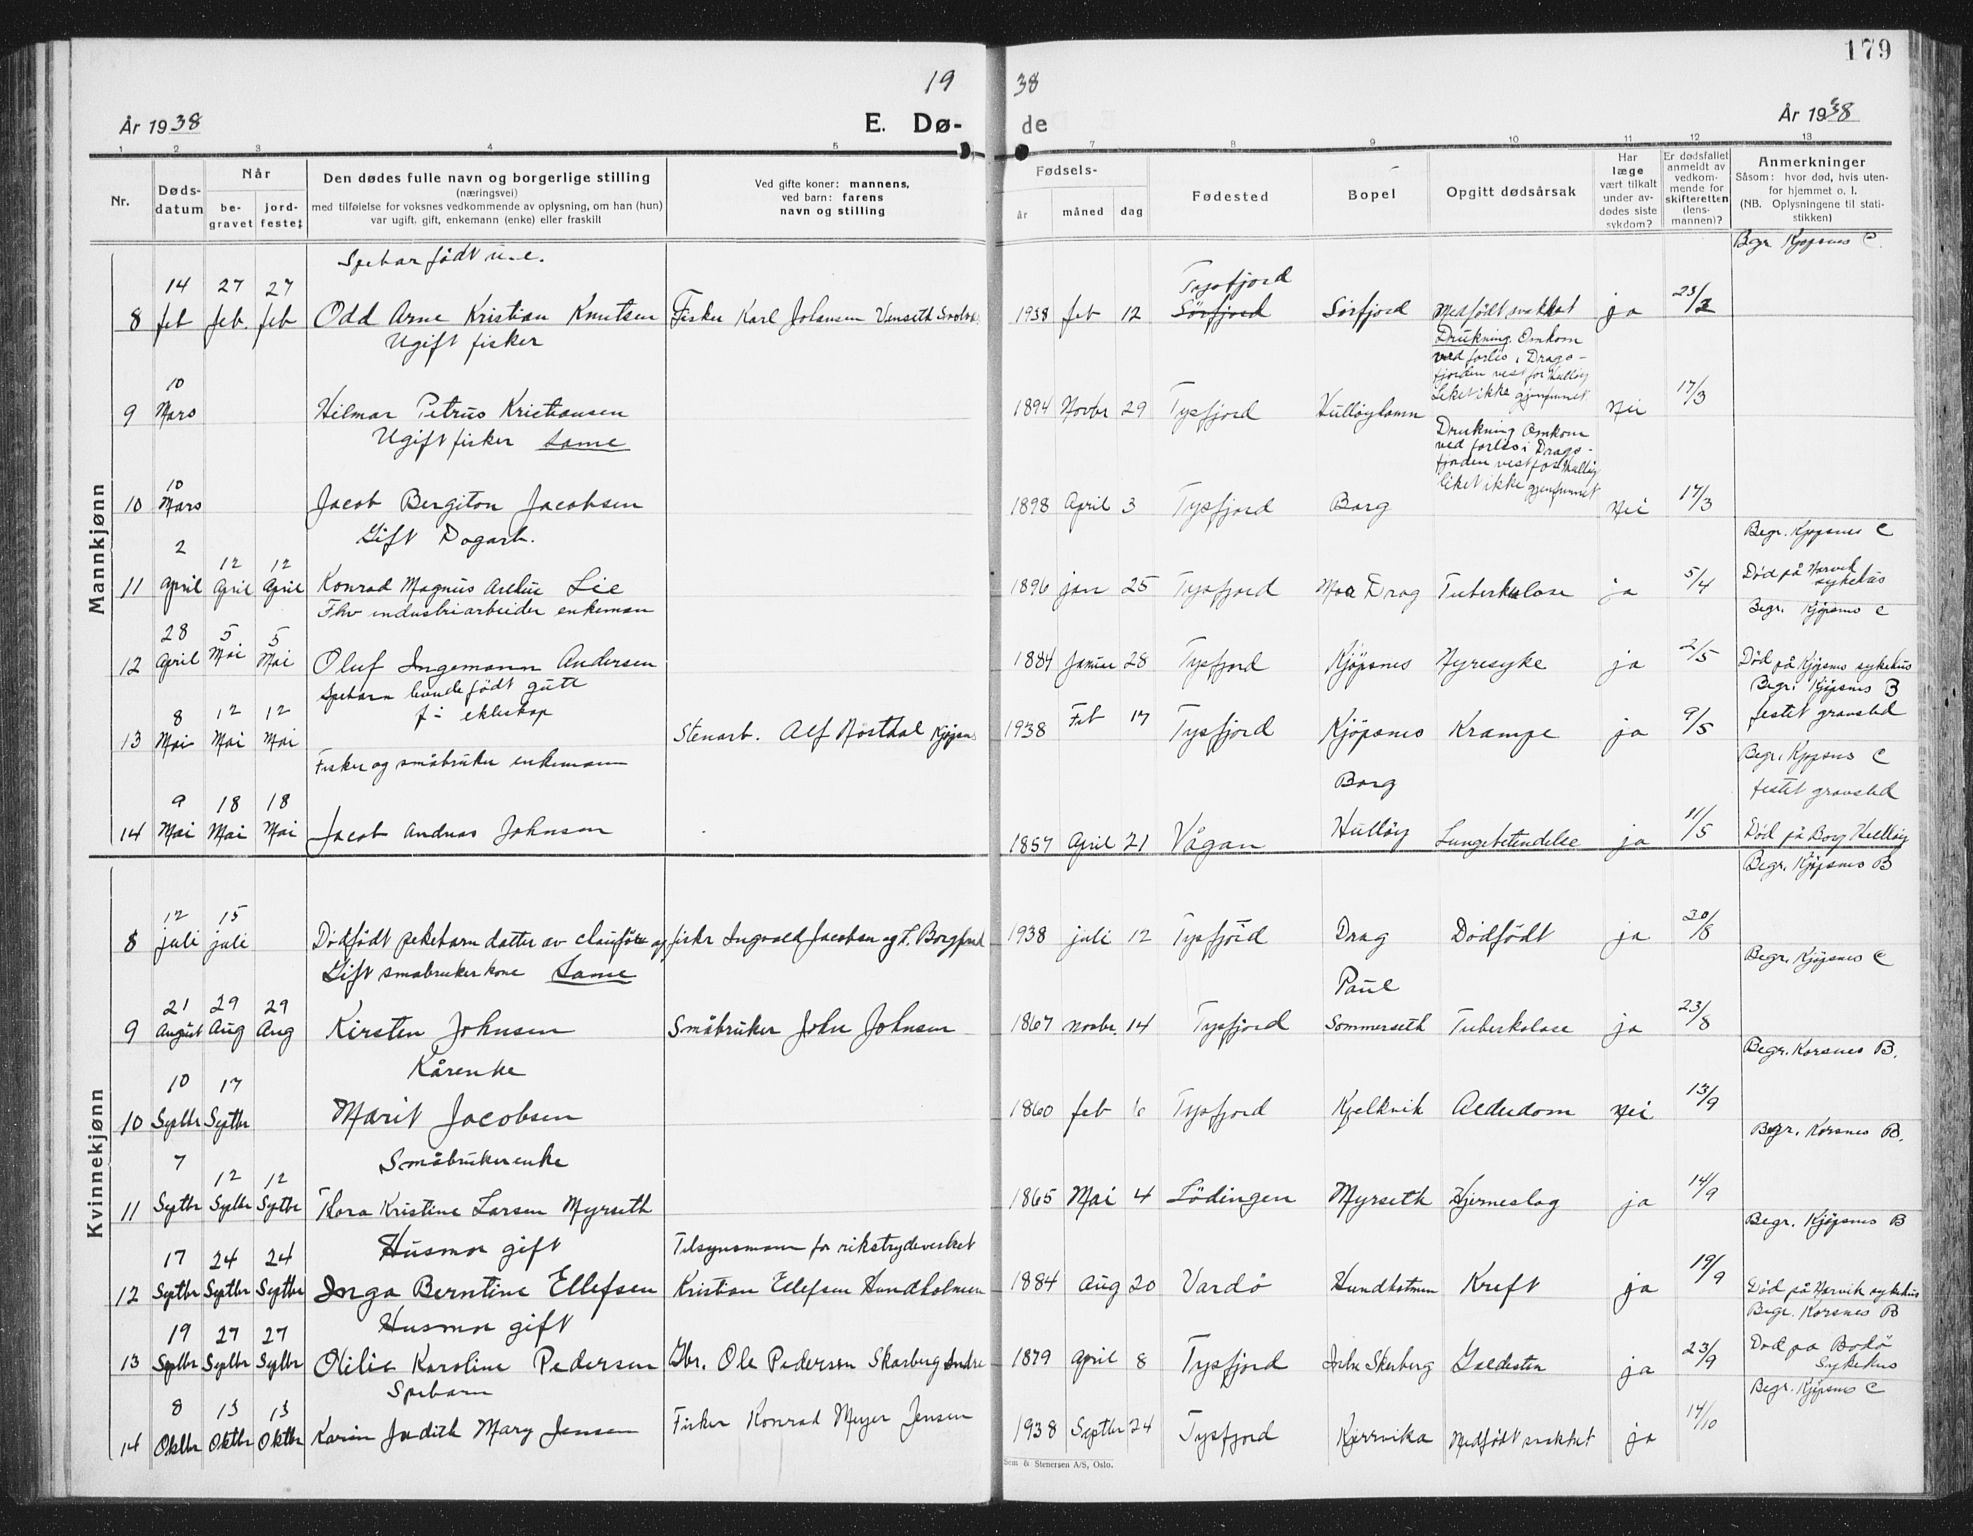 179
19 38
År 1938 E. Dø- de År 1938
1 2 3 4 5 7 8 9 10 11 12 13
Nr.
Døds-
datum
Når
be-
gravet
jord-
festet
Den dødes fulle navn og borgerlige stilling
(næringsvei)
med tilføielse for voksnes vedkommende av oplysning, om han (hun)
var ugift, gift, enkemann (enke) eller fraskilt
Ved gifte koner: mannens,
ved barn: farens
navn og stilling
Fødsels-
år måned dag
Fødested
Bopel
Opgitt dødsårsak
Har
læge
vært tilkalt
under av-
dødes siste
sykdom?
Er dødsfallet
anmeldt av
vedkom-
mende for
skifteretten
(lens-
mannen)?
Anmerkninger
Såsom: hvor død, hvis uten-
for hjemmet o. l.
(NB. Oplysningene til stati-
stikken)
Mannkjønn
Begr. Kjøpsnes C.
født u.e.
14 27 27 Tysfjord
8 feb feb. feb Odd Arne Kristian Knutsen Fisker Karl Johansen 1938 feb 12 Sørfjord Sørfjord Medfødt svakhet ja 23/2
Ugift fisker
Drukning. Omkom
ved forlis i Drags-
fjorden vest for Hulløy
Liket ikke gjenfunnet
10
9 Mars Hilmar Petrus Kristiansen 1894 Novbr 29 Tysfjord Hulløyhamn Nei 17/3
Ugift fisker Same
Drukning Omkom
ved forlis i Drags-
fjorden vest for Hulløy
liket ikke gjenfunnet
10
10 Mars Jacob Bergiton Jacobsen 1898 April 3 Tysfjord Borg Nei 17/3
Gift Dagarb. Begr. Kjøpsnes C
2 12 12
11 April April April Konrad Magnus Lie 1896 jan 25 Tysfjord Drag Tuberkulose ja 5/4 Død på Narvik
sykehus
Fhv industriarbeider enkeman Begr. Kjøpsnes C
28 5 5
12 April Mai Mai Oluf Ingemann Andersen 1884 Januar 28 Tysfjord Kjøpsnes Nyresyke ja 2/5 Død på Kjøpsnes sykehus
Spebarn levende født gutt Begr. Kjøpsnes B
f. i ekteskap festet gravsted
8 12 12
13 Mai Mai Mai Stenarb. Alf Røsthal Kjøpsn 1938 Feb 17 Tysfjord Kjøpsnes Krampe ja 9/5
Fisker og småbruker enkemann Begr. Kjøpsnes C
Borg festet gravsted
9 18 18
14 Mai Mai Mai Jacob Andreas Johnsen 1857 April 21 Vågan Hulløy Lungebetendelse ja 11/5 Død på Borg Hulløy
Kvinnekjønn
Begr. Kjøpsnes B
12 15
8 juli juli Dødfødt pikebarn datter av og fiskr Ingvald Jacobsen og f. Borgfjord 1938 juli 12 Tysfjord Drag Dødfødt ja 20/8
Gift småbruker kone Same Paul Begr. Kjøpsnes C
21 29 29
9 August Aug Aug Kirsten Johnsen Småbruker John Johnsen 1867 Novbr. 14 Tysfjord Sommerseth Tuberkulose ja 23/8
Kårenke Begr. Korsnes B.
10 17
10 Septbr Septbr Marit Jacobsen 1860 feb 6 Tysfjord Kjelkvik Alderdom Nei 13/9
Småbrukerenke Begr. Korsnes B.
7 12 12
11 Septbr Septbr Septbr Thora Kristine Larsen Myrseth 1865 Mai 4 Lødingen Myrseth Hjerneslag ja 14/9
Husmor gift Tilsynsmann for rikstrygdeverket Begr. Kjøpsnes B
17 24 24
12 Septbr Septbr Septbr Inga Berntine Ellefsen Kristian Ellefsen Hundholmen 1884 Aug 20 Vardø Hundholmen Kreft ja 19/9 Død på Narvik sykehus
Husmor gift Begr. Korsnes B
19 27 27
13 Septbr Septbr Septbr Otilie Karoline Pedersen Gbr. Ole Pedersen Skarberg Indre 1879 April 8 Tysfjord Indre Skarberg Galdesten ja 23/9 Død på Bodø
Sykehus
Spebarn Begr. Kjøpsnes C
8 13 13
14 Oktbr Oktbr Oktbr Karin Judith Mary Jensen Fisker Konrad Meyer Jensen 1938 Septbr 24 Tysfjord Kjerrvika Medfødt svakhet ja 14/10
Sem & Stenersen A/S, Oslo.